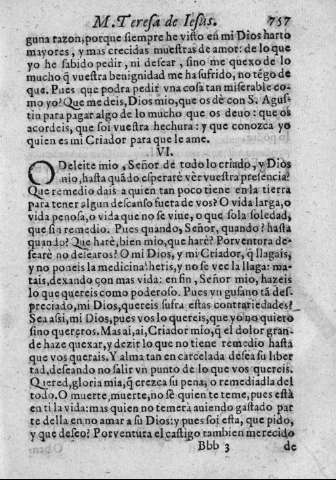 M. Teresa de Iesus. 757
guna razon, porque siempre he visto en mi Dios harto
mayores, y mas crecidas muestras de amor: de lo que
yo he sabido pedir, ni desear, sino me quexo de lo
mucho q̃ vuestra benignidad me ha sufrido, no tẽgo de
que. Pues que podra pedir vna cosa tan miserable co-
mo yo? Que me deis, Dios mio, que os dè con S. Agus-
tin para pagar algo de lo mucho que os deuo: que os
acordeis, que soi vuestra hechura: y que conozca yo
quien es mi Criador para que le ame.
VI.
O Deleite mio, Señor de todo lo criado, y Dios
mio, hasta quãdo esperarè ver vuestra presencia?
Que remedio dais a quien tan poco tiene en la tierra
para tener algun descanso fuera de vos? O vida larga, o
vida penosa, o vida que no se viue, o que sola soledad,
que sin remedio. Pues quando, Señor, quando? hasta
quando? Que harè, bien mio, que harè? Porventura de-
searè no desearos? O mi Dios, y mi Criador, q̃ llagais,
y no poneis la medicina: heris, y no se vee la llaga: ma-
tais, dexando con mas vida: en fin, Señor mio, hazeis
lo que quereis como poderoso. Pues vn gusano tã des-
preciado, mi Dios, quereis sufra estas contrariedades?
Sea assi, mi Dios, pues vos lo quereis, que yo no quiero
sino quereros. Mas ai, ai, Criador mio, q̃ el dolor gran-
de haze quexar, y dezir lo que no tiene remedio hasta
que vos querais. Y alma tan encarcelada desea su liber
tad, deseando no salir vn punto de lo que vos quereis.
Quered, gloria mia, q̃ crezca su pena, o remediadla del
todo. O muerte, muerte, no sè quien te teme, pues està
en ti la vida: mas quien no temerà auiendo gastado par
te della en no amar a su Dios: y pues soi esta, que pido,
y que deseo? Porventura el castigo tambien merecido
Bbb 3 de